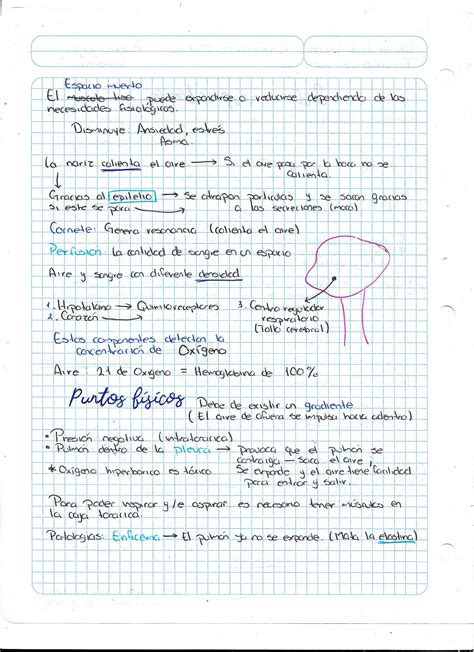 Espacio muerto
El musculo liso puede expandirse o reducirse dependiendo de las
necesidades fisiológicas.
Disminuye Ansiedad, estrés
Asma.
La nariz calienta el aire → Si el aire pasa por la boca no se
calienta.
Gracias al epitelio → Se atrapan particulas y se sacan gracias
si este se para → a las secreciones (moco)
Cornete: Genera resonancia (calienta el aire)
Perfusion: La cantidad de sangre en un espacio
Aire y sangre con diferente densidad
1. Hipotalamo → Quimioreceptores 3. Centro regulador
2. Corazón → respiratorio
(Tallo cerebral)
Estos componentes detectan la
concentración de Oxígeno
Aire: 21 de Oxigeno = Hemoglobina de 100%
Puntos físicos Debe de existir un gradiente
(El aire de afuera se impulsa hacia adentro)
• Presión negativa (intratoracica)
• Pulmón dentro de la pleura → provoca que el pulmón se
contraiga — saca el aire,
* Oxígeno hiperbarico es tóxico Se expande y el aire tiene facilidad
para entrar y salir.
Para poder inspirar y/e aspirar es necesario tener músculos en
la caja toracica.
Patologias: Enficema → El pulmón ya no se expande. (Mata la elastina)